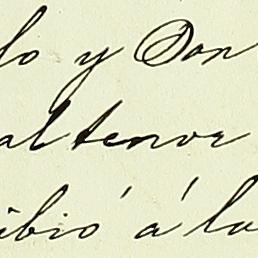 lo y Don
al tenor
ibió á la